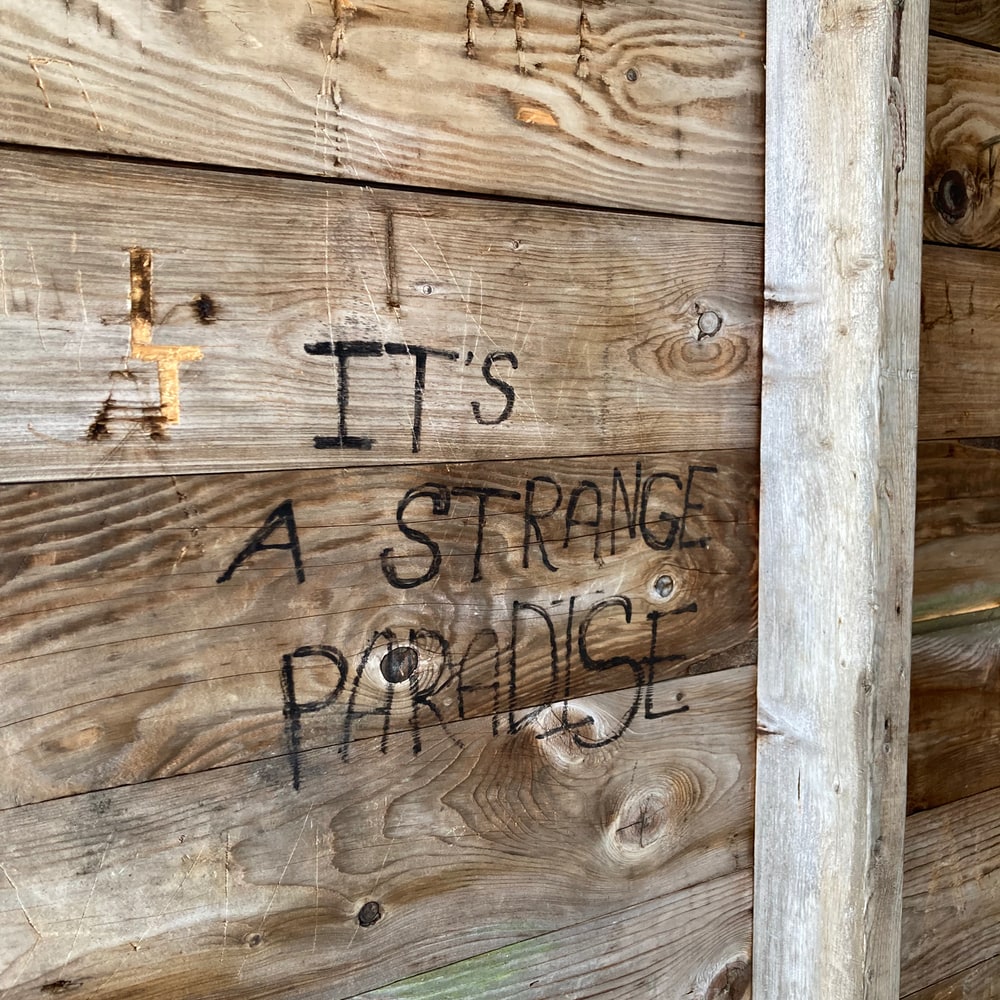 IT'S
A STRANGE
PARADISE